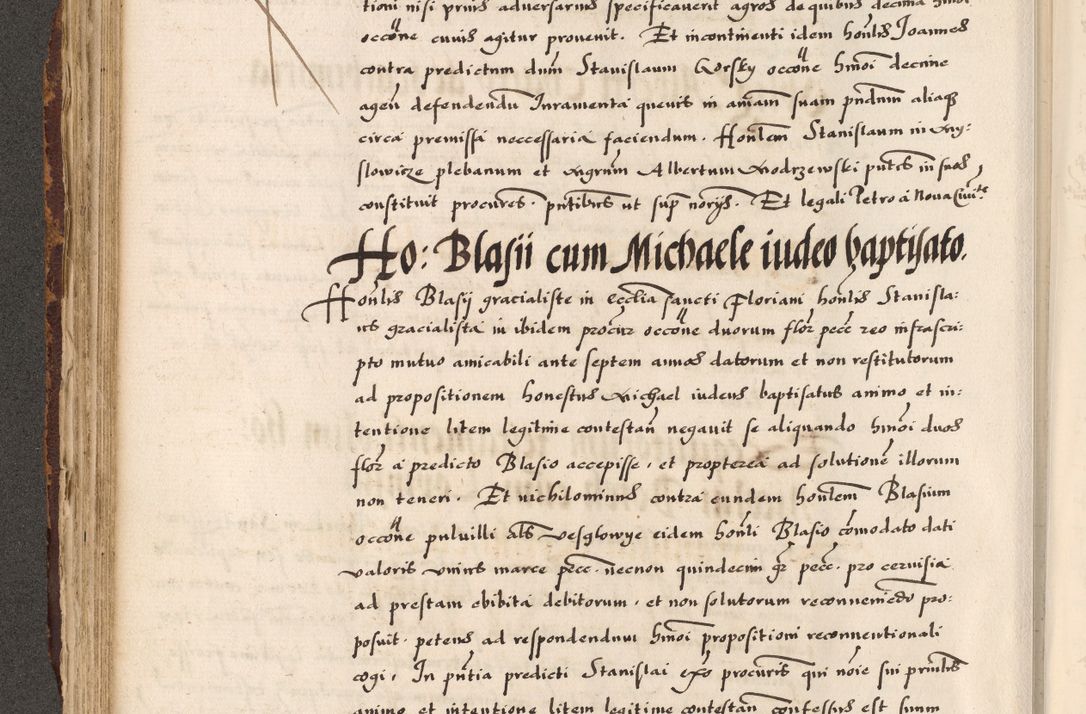 tioni nisi prius adversarius specificaverit agros de quibus decima hmoi
occone cuius agitur provenit. Et incontinenti idem honlis Joannes
contra predictum dnm Stanislaum Gorsky occone hmoi decime
agen defendendu Iuramenta quevis in aiam suam pndum aliaqz
circa premissa neccessaria faciendum. Honlem Stanislaum in My:
slowicze plebanum et Mgrum Albertum Modrzewski pntes in suos
constituit procures. pntibus ut sup norijs. Et legali Petro a Nova Civite
Ho: Blasii cum Michaele iudeo baptisato.
Honlis Blasij gracialiste in ecclia sancti Floriani honlis Stanisla:
us gracialista in ibidem procur occone duorum flor pecc reo infrascri:
pto mutuo amicabili ante septem annos datorum et non restitutorum
ad propositionem honestus Michael iudeus baptisatus animo et in:
tentione litem legitime contestan negavit se aliquando hmoi duos
flor a predicto Blasio accepisse, et propterea ad solutione illorum
non teneri. Et nichilominus contra eundem honlem Blasium
occone pulvilli als vesglowye eidem honli Blasio comodato dati
valoris unius marce pecc. necnon quindecim gr pecc. pro cervisia
ad prestam ebibita debitorum, et non solutorum reconveniedo pro:
posuit. petens ad respondendum hmoi propositioni reconventionali
cogi, In pntia predicti Stanislai exo procuris qui noie sui prinlis
animo et intentione litem legitime contestan confessus est suum